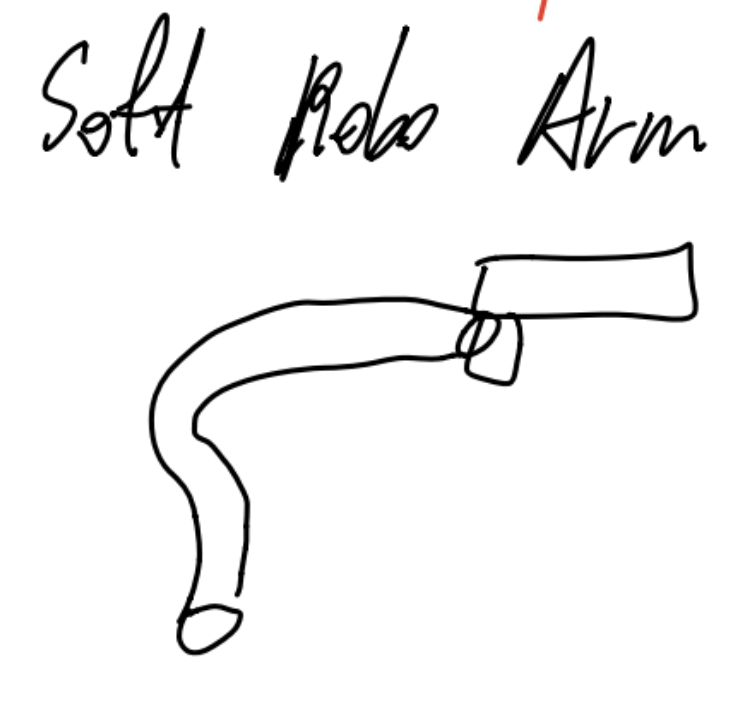 Soft Robo Arm